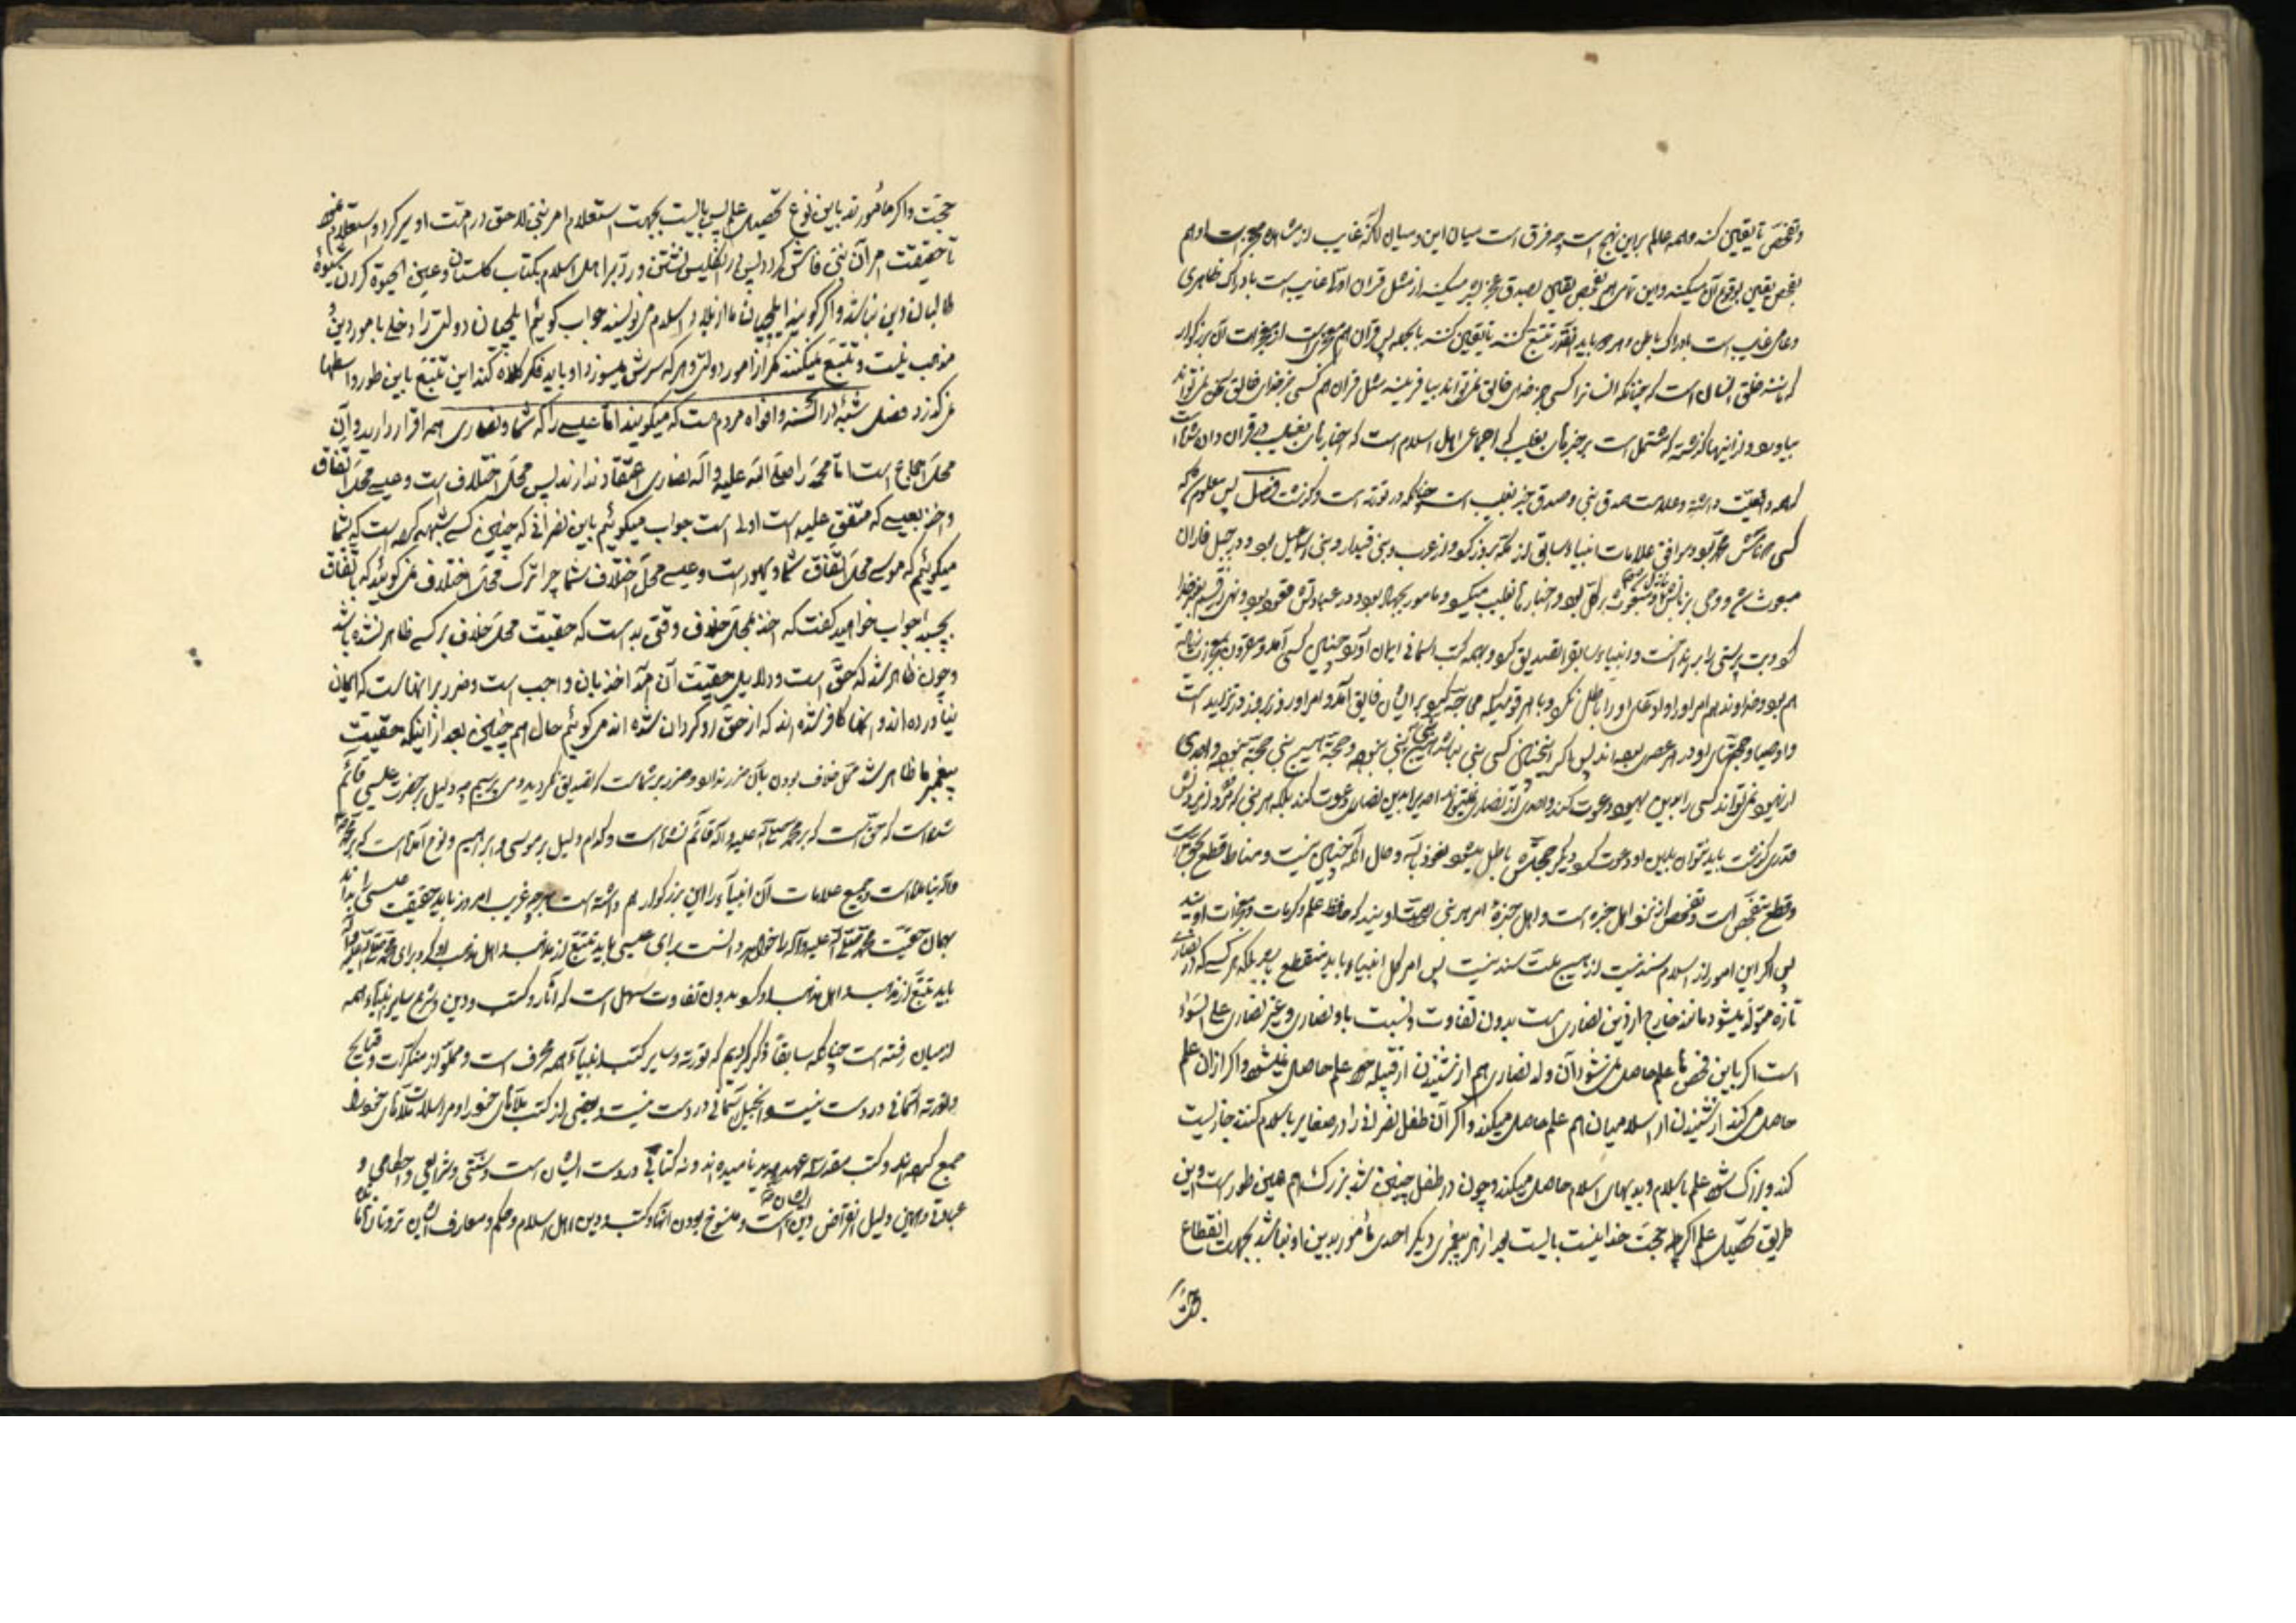 و تفحص تا یقین کند و همه عالم بر این نهج است چه فرق است میان این و میان آنکه غایب از مشاهده معجز است او هم
بفحص یقین بوقوع آن میکند و این تهی هم بفحص یقین بصدق معجزه میکند از مثل قران او غایب است بادراک ظاهری
و عامی غایب است بادراک باطن و هر دو باید آنقدر تتبع کنند تا یقین کنند بالجمله پس قران هم معجزیست از معجزات آن بزرکوار
که مانند خلق انسان است که چنانکه انسان را کسی جز خدای خالق نمیتواند بیافریند مثل قران هم کسی جز خدای خالق سخن نمیتواند
بیاورد و از اینها گذشته که مشتمل است بر خبرهای بغیب که اجماعی اهل اسلام است که اخبارهای بغیب در قران دان شما است
که همه واقعیت داشته و علامت صدق نبی و صدق خبر بغیب است چنانکه در توریة است و گذشت فصل پس معلوم شد که
کسی که نامش محمد بود و موافق علامات انبیاء سابق از مکه بروز کرد و از عرب و بنی قیدار و بنی اسمعیل بود و در جبل فاران
مبعوث شد و وحی بر زبانش نازل شد و مبعوث بر کل بود و اخبارها بغیب میکرد و مامور بجهاد بود و در عباداتش و نهی از قسم بغیر خدا
کرد و بت پرستی را برانداخت و انبیاء سابق را تصدیق کرد و بهمه کتب آسمانی ایمان آورد چنین کسی آمد و مقرون بمعجزات
هم بود و خداوند هم امر او را و ادعای او را باطل نکرد و با هر قومیکه محاجه کرد بر ایشان فایق آمد و امر او روز بروز در تزاید است
و اوصیا و حجتهای او در هر عصر بوده اند پس اگر اینچنین کسی نبی نباشد هیچ نبی نبی نبوده و حجة هیچ نبی حجة نبوده و احدی
از یهود نمیتواند کسی را بدین یهود دعوت کند و احدی از نصاری نمیتواند احدی را بدین نصاری دعوت کند بلکه هر نبی که مرد و از مردنش
قدری گذشت باید نتوان بدین او دعوت کرد و دیگر حجتش باطل میشود نعوذ بالله و حال آنکه چنین نیست و مناط قطع بحق است
و قطع بتفحص است و تفحص از نحو اهل خبره است و اهل خبره امر هر نبی امت اویند که حافظ علم و کرامات و معجزات اویند
پس اگر این امور از اسلام سند نیست از هیچ ملت سند نیست پس امر کل انبیاء باید منقطع باشد بلکه هر کسی که در نصاری
تازه متولد میشود مانند خارج از دین نصاری است بدون تفاوت و نسبت باو نصاری و غیر نصاری علی السواء
است اگر باین فحص ها علم حاصل نمیشود آن ولد نصاری هم از شنیدن از قبیله خود علم حاصل نمیشود و اگر از آن علم
حاصل می کند از شنیدن از اسلامیان هم علم حاصل میکند و اگر آن طفل نصرانی را در صغار باسلام کنند جاز لیست
کند و بزرک شود علم باسلام و بدیهای اسلام حاصل میکند و چون در طفل چنین شد بزرک هم همین طور است و این
طریق تحصیل علم اگر چه حجت خدا نیست بایست بعد از هر پیغمبری دیگر احدی مأمور بدین او نباشد بجهت انقطاع
حجت
حجت و اگر مأمورند باین نوع تحصیل علم پس بایست بجهت استعلام امر نبی لاحق در امت او سیر کرد و استعلام نمود
تا حقیقت امر آن نبی فاش گردد پس در انگلیس نشستن و رد بر اهل اسلام بکتاب گلستان و عین الحیوة کردن شیوهٔ
طالبان دین نباشد و اگر گویند ایلچیان ما از بلاد اسلام می نویسند جواب گوئیم ایلچیان دولتی را دخلی بامور دین و
مذهب نیست و تتبع نمیکنند مگر از امور دولتی و هر که سرش میسوزد او باید فکر کلاه کند این تتبع باین طور و اسطها
نمی گذرد فصل شبههٔ در السنه و افواه مردم است که میگویند اما عیسی را که شما و نصاری همه اقرار دارید و آن
محل اجماع است اما محمد را صلی الله علیه و آله نصاری اعتقاد ندارند پس محل اختلاف است و عیسی محل اتفاق
و اخذ بعیسی که متفق علیه است اولی است جواب میگوئیم باین نصرانی که چنین کسی شبهه کرده است که شما
میگوئیم که موسی محل اتفاق شما و یهود است و عیسی محل اختلاف شما چرا ترک محل اختلاف نمی گوئید که باتفاق
بچسبید جواب خواهید گفت که اخذ بمحل خلاف وقتی بد است که حقیت محل خلاف بر کسی ظاهر نشده باشد
و چون ظاهر شد که حق است و دلایل حقیت آن آمد اخذ بان واجب است و ضرر بر انها است که ایمان
نیاورده اند و انها کافر شده اند که از حق رو گردان شده اند می گوئیم حال هم چنین بعد از اینکه حقیت
پیغمبر ما ظاهر شد محل خلاف بودن بآن ضرر ندارد و ضرر بر شماست که تصدیق نکردید و می پرسیم چه دلیل بر حضرت عیسی قائم
شده است که حق است که بر محمد صلی الله علیه و آله قائم نشده است و کدام دلیل بر موسی و ابراهیم و نوح آمده است که بر محمد
و آله نیامده است و جمیع علامات آن انبیاء را این بزرکوار هم داشته است هر چه غریب امروز باید حقیقت عیسی را بداند
بهمان حقیت محمد صلی الله علیه و آله را خواهد دانست برای عیسی باید تتبع از مذهب و اهل مذهب او کرد و برای محمد صلی الله علیه و آله
باید تتبع از مذهب و اهل مذهب او کرد بدون تفاوت سهل است که آثار و کتب و دین و شرع سایر انبیاء همه
از میان رفته است چنانکه سابقا ذکر کردیم که توریة و سایر کتب انبیاء همه محرف است و مملو از منکرات و قبایح
و توریة آسمانی در دست نیست و انجیل آسمانی در دست نیست و بعضی از کتب ملاهای خود را و مراسلات ملاهای خود را
جمع کرده اند و کتب مقدسه عهد جدید نامیده اند و نه کتابی در دست ایشان است و نه سنتی و شرایعی و احکامی و
عباداتی و همین دلیل انقراض دین ایشان است و منسوخ بودن انها و کتب و دین اهل اسلام و حکم و معارف ایشان تر و تازه